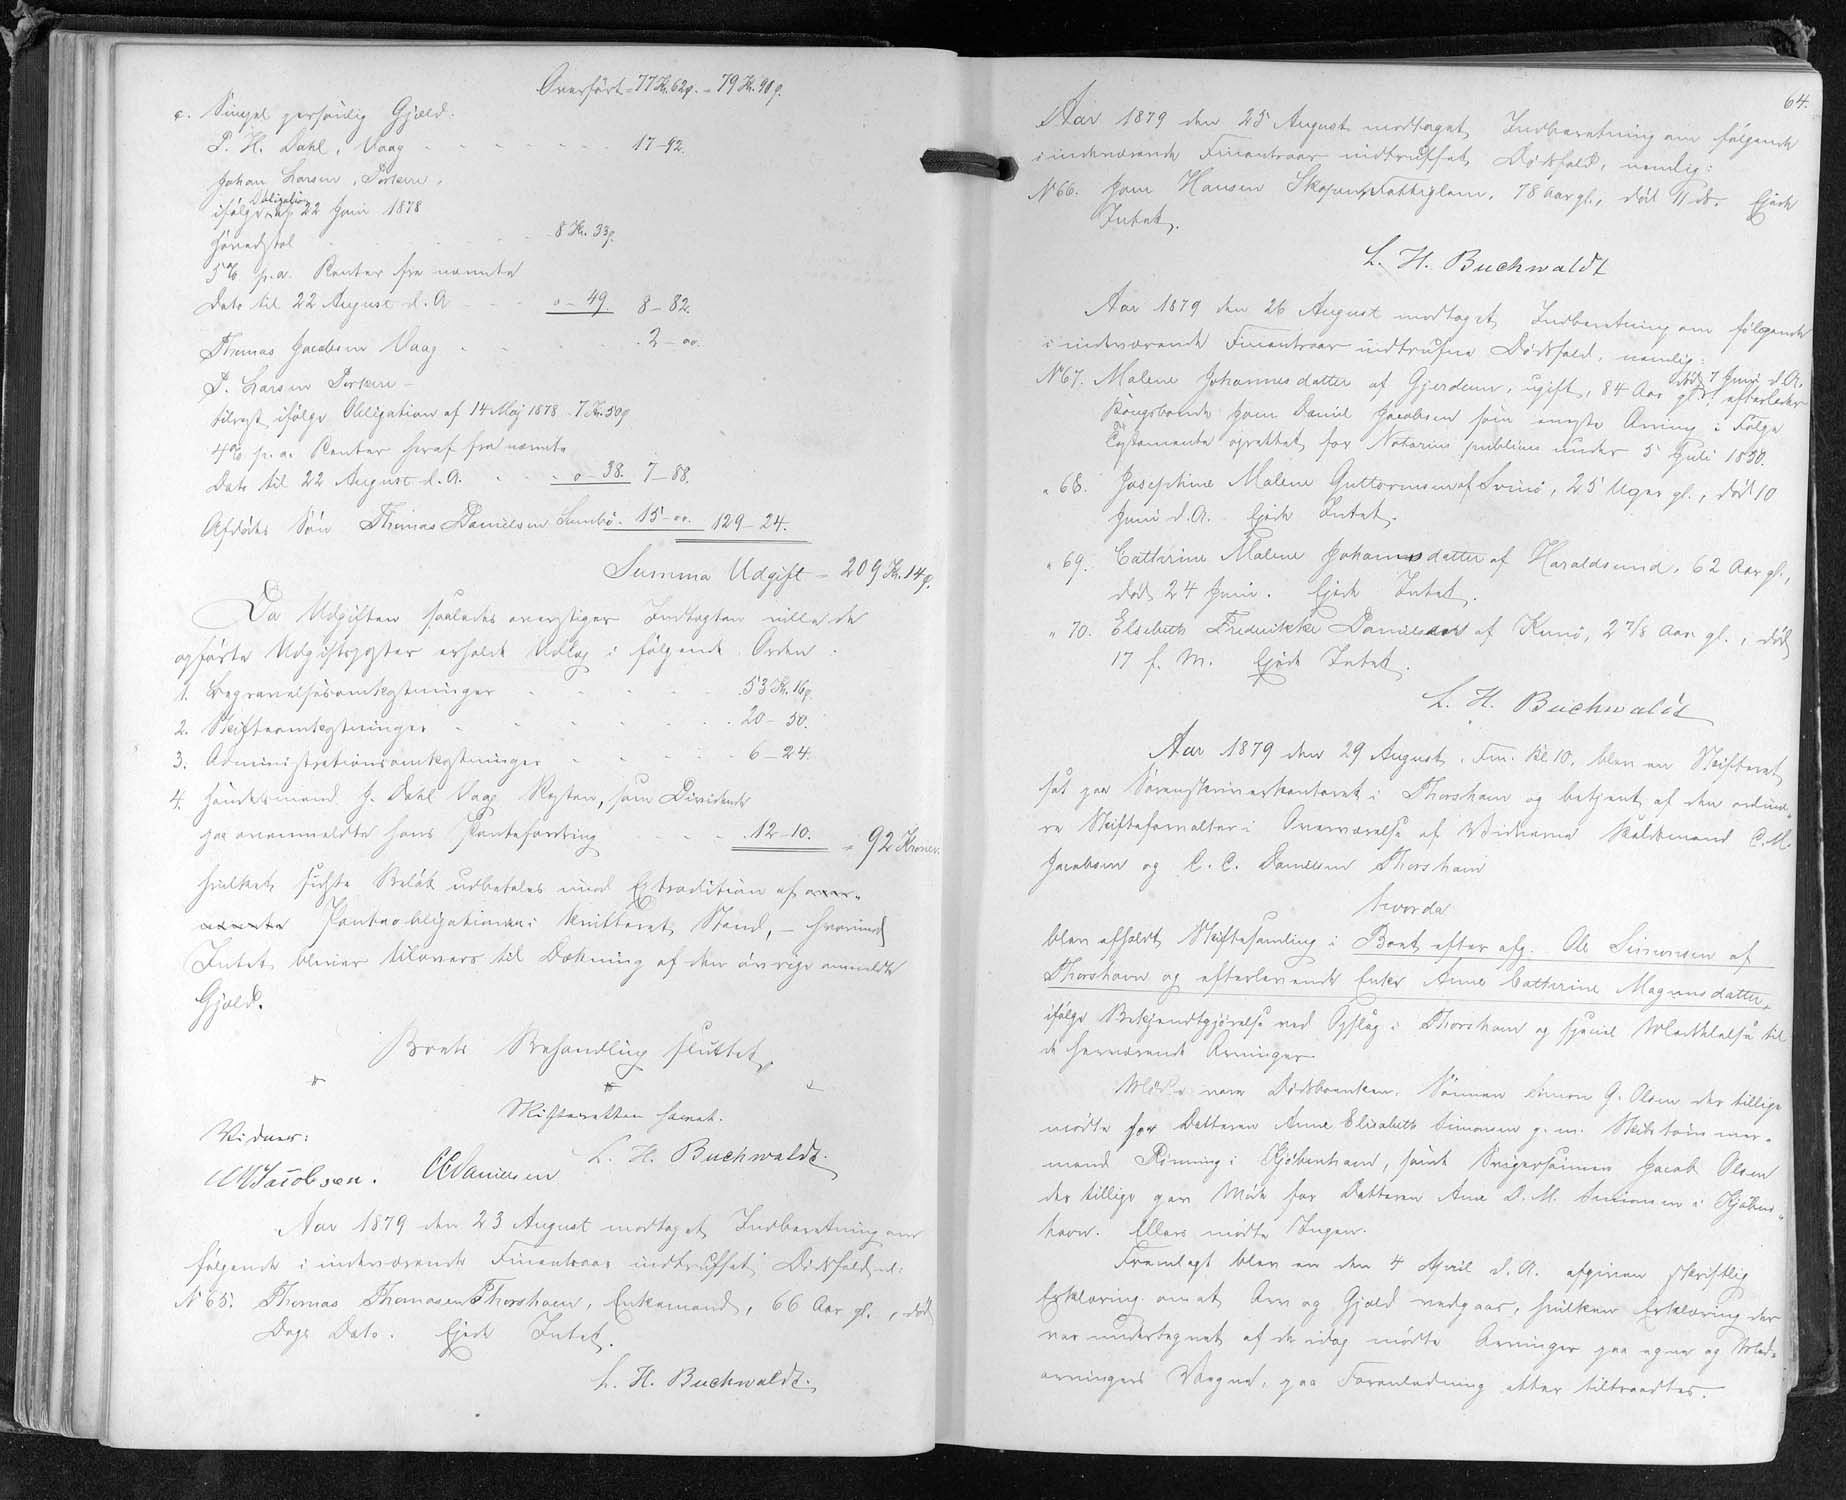 Overført = 77 Kr. 62 ø. = 79 Kr. 90 ø.
c. Simpel personlig Gjæld.
P. H. Dahl, Vaag 17-92.
Johan Larsen, Porkere,
ifølge Obligation af 22 Juni 1878
Hovedstol 8 Kr. 33 ø.
5 % p. a. Renter fra nævnte
Dato til 22 August d. A. 0-49. 8-82.
Thomas Jacobsen Vaag 2-00.
P. Larsen Porkere -
tilrest ifølge Obligation af 14 Maj 1878 7 Kr. 50 ø
4 % p. a. Renter heraf fra nævnte
Dato til 22 August d. A. 0-38. 7-88.
Afdødes Søn Thomas Danielsen Sumbø. 15-00. 129-24.
Summa Udgift = 209 Kr. 14 ø.
Da Udgiften saaledes overstiger Indtægten ville de
opførte Udgiftsposter erholde Udlæg i følgende Orden:
1. Begravelsesomkostninger 53 Kr. 16 ø.
2. Skifteomkostninger 20-50.
3. Administrationsomkostninger 6-24.
4. Handelsmand J. Dahl Vaag Resten, som Dividende
paa ovenmeldte hans Pantefordring 12-10. = 92 Kroner.
hvilket sidste Beløb udbetales imod Extradition af
Panteobligationen i kvitteret Stand, - hvorimod
Intet bliver tilovers til Dækning af den øvrige anmeldte
Gjæld.
Boets Behandling sluttet.
Skifteretten hævet.
Vidner:
L. H. Buchwaldt.
CM Jacobsen. CC Danielsen
Aar 1879 den 23 August modtaget Indberetning om
følgende i indeværende Finantsaar indtruffet Dødsfald, nl:
N 65. Thomas Thomasen Thorshavn, Enkemand, 66 Aar gl., død
Dags Dato. Ejede Intet.
L. H. Buchwaldt.
64.
Aar 1879 den 25 August modtaget Indberetning om følgende
i indeværende Finantsaar indtruffet Dødsfald, nemlig:
N 66. Joen Hansen Skopun, Fattiglem, 78 Aar gl., død 11 ds. Ejede
Intet.
L. H. Buchwaldt
Aar 1879 den 26 August modtaget Indberetning om følgende
i indeværende Finantsaar indtrufne Dødsfald, nemlig:
N 67. Malene Johannesdatter af Gjerdum, ugift, 84 Aar gl., død 7 Juni d. A. efterlader
Kongsbonde Joen Daniel Jacobsen som eneste Arving i Følge
Testamente oprettet for Notarius publicus under 5 Juli 1850.
" 68. Josephine Malene Guttormsen af Svinø, 25 Uger gl., død 10
Juni d. A. Ejede Intet.
" 69. Cathrine Malene Johannesdatter af Haraldsund, 62 Aar gl.,
død 24 Juni. Ejede Intet.
" 70. Elsebeth Frederikke Danielsen af Kunø, 2 7/8 Aar gl., død
17 f. M. Ejede Intet.
L. H. Buchwaldt
Aar 1879 den 29 August, Fm. Kl 10, blev en Skifteret
sat paa Sorenskriverkontoret i Thorshavn og betjent af den ordinæ-
re Skifteforvalter i Overværelse af Vidnerne C. M.
Jacobsen og C. C. Danielsen Thorshavn
hvorda
blev afholdt Skiftesamling i Boet efter afg. Ole Simonsen af
Thorshavn og efterlevende Enke Anne Cathrine Magnusdatter,
ifølge Bekjendtgjørelse ved Opslag i Thorshavn og speciel Meddelelse til
de herværende Arvinger.
Mødte vare Dødsboenken, Sønnen Simon G. Olsen der tillige
mødte for Datteren Anne Elisabeth Simonsen g. m. Skibstømmer-
mand Rønning i Kjøbenhavn, samt Svigersønnen Jacob Olsen
der tillige gav Møde for Datteren Ane D. M. Simonsen i Kjøben-
havn. Ellers mødte Ingen.
Fremlagt blev en den 4 April d. A. afgiven skriftlig
Erklæring om at Arv og Gjæld vedgaaes, hvilken Erklæring der
var undertegnet af de idag mødte Arvinger paa egne og Med-
arvingers Vegne, paa Foranledning atter tiltraadtes.